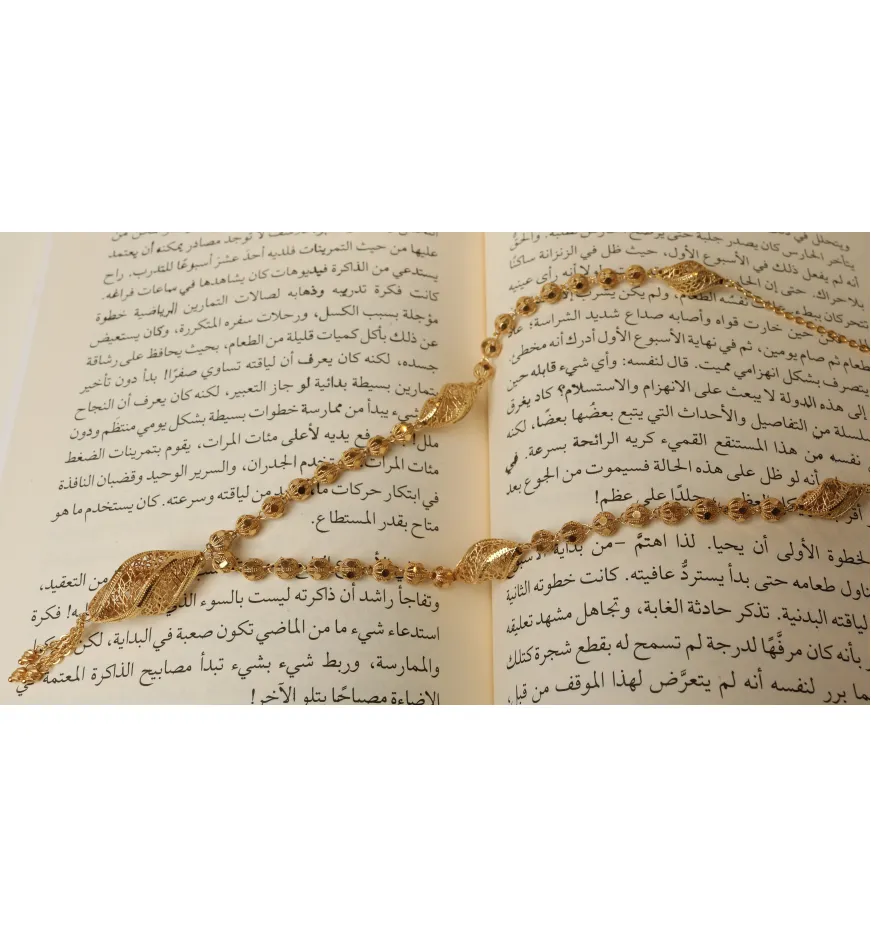 ويتخلل في
يتأخر الحارس كان يصدر جلبة حتى
لم يفعل ذلك في الأسبوع الأول، حيث ظل في الزنزانة ساكنًا
بلا حراك. حتى إن لأنه رأى عينيه
تتحركان نفسه الطعام، ولم يكن يشرب
حين خارت قواه وأصابه صداع شديد الشراسة؛
طعام ثم صام يومين، ثم في نهاية الأسبوع الأول أدرك أنه مخطئ.
يتصرف بشكل انهزامي مميت. قال لنفسه: وأي شيء قابله حين
إلى هذه الدولة لا يبعث على الانهزام والاستسلام؟ كاد يغرق
سلسلة من التفاصيل والأحداث التي يتبع بعضُها بعضًا، لكنه
نفسه من هذا المستنقع القميء كريه الرائحة بسرعة. في
أنه لو ظل على هذه الحالة فسيموت من الجوع بعد
جلدًا على عظم!
الخطوة الأولى أن يحيا. لذا اهتمَّ –من بداية
تناول طعامه حتى بدأ يستردُّ عافيته. كانت خطوته الثانية
لياقته البدنية. تذكر حادثة الغابة، وتجاهل مشهد تعليقه
بأنه كان مرفَّهًا لدرجة لم تسمح له بقطع شجرة كتلك
ما برر لنفسه أنه لم يتعرَّض لهذا الموقف من قبل،
لا توجد مصادر يمكنه أن يعتمد
عليها من حيث التمرينات فلديه أحدَ عشرَ أسبوعًا للتدرب. راح
يستدعي من الذاكرة فيديوهات كان يشاهدها في ساعات فراغه.
كانت فكرة تدريبه وذهابه لصالات التمارين الرياضية خطوة
مؤجلة بسبب الكسل، ورحلات سفره المتكررة، وكان يستعيض
عن ذلك بأكل كميات قليلة من الطعام، بحيث يحافظ على رشاقة
جسده، لكنه كان يعرف أن لياقته تساوي صفرًا! بدأ دون تأخير
تمارين بسيطة بدائية لو جاز التعبير، لكنه كان يعرف أن النجاح
شيء يبدأ من ممارسة خطوات بسيطة بشكل يومي منتظم ودون
ملل! رفع يديه لأعلى مئات المرات، يقوم بتمرينات الضغط
مئات المرات يستخدم الجدران، والسرير الوحيد وقضبان النافذة
في ابتكار حركات من لياقته وسرعته. كان يستخدم ما هو
متاح بقدر المستطاع.
من التعقيد،
وتفاجأ راشد أن ذاكرته ليست بالسوء الذي فكرة
استدعاء شيء ما من الماضي تكون صعبة في البداية، لكن
والممارسة، وربط شيء بشيء تبدأ مصابيح الذاكرة المعتمة في
الإضاءة مصباحًا يتلو الآخر!